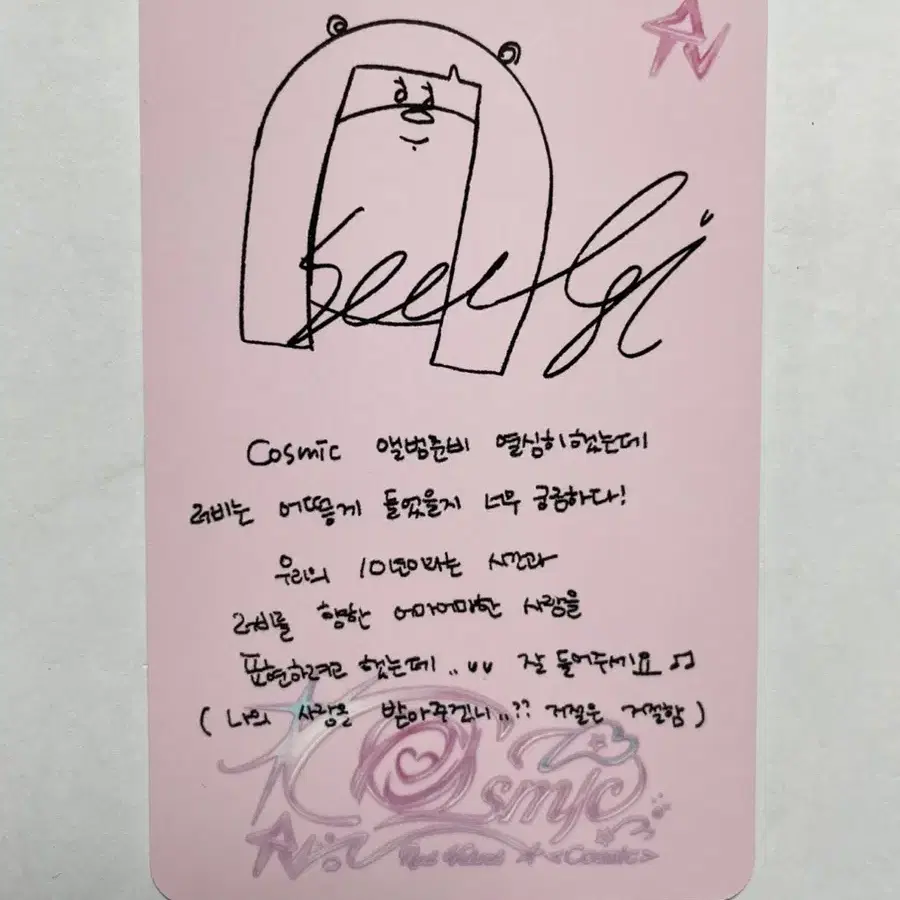 RV
Seulgi
Cosmic 앨범준비 열심히했는데
러비는 어떻게 들었을지 너무 궁금하다!
우리의 10년이라는 시간과
러비를 향한 어마어마한 사랑을
표현하려고 했는데..ᴗᴗ 잘 들어주세요♫
(나의 사랑을 받아주겠니..?? 거절은 거절함)
Cosmic
RV
Red Velvet <Cosmic>